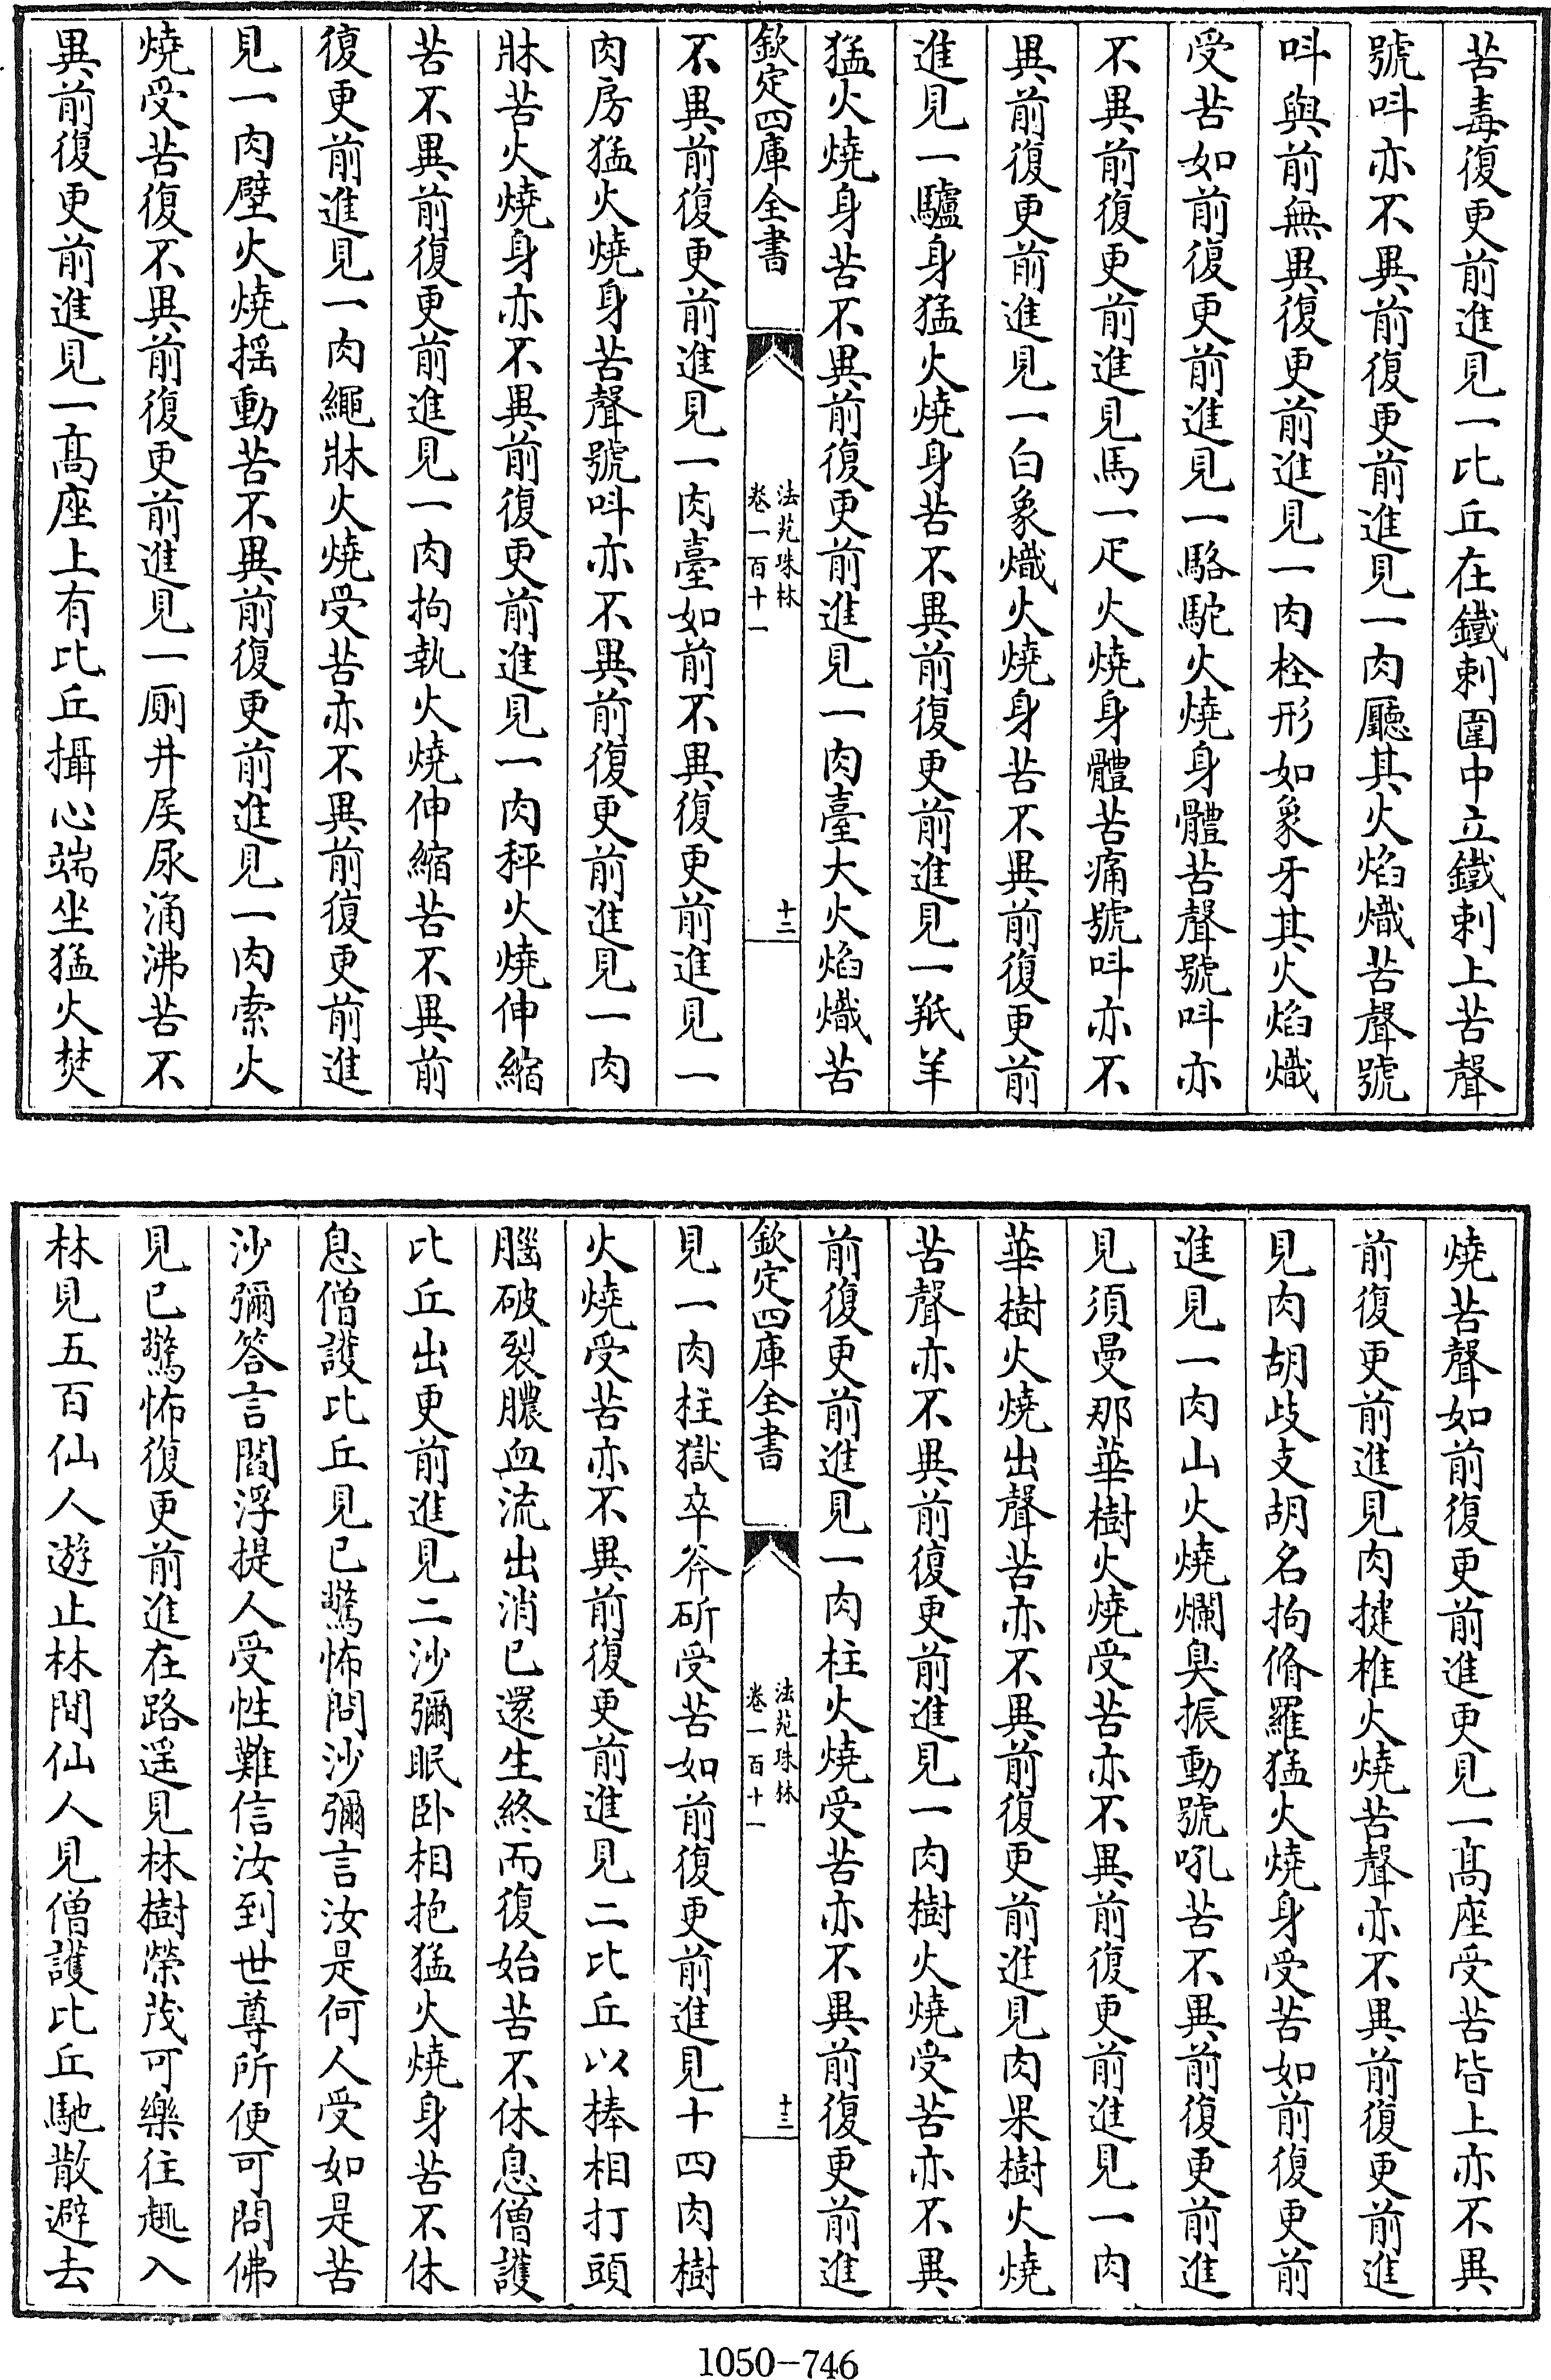 苦毒復更前進見一比丘在鐵刺圍中立鐵刺上苦聲
號呌亦不異前復更前進見一肉廳其火焰熾苦聲號
呌與前無異復更前進見一肉栓形如象牙其火焰熾
受苦如前復更前進見一駱駝火燒身體苦聲號呌亦
不異前復更前進見馬一疋火燒身體苦痛號呌亦不
異前復更前進見一白象熾火燒身苦不異前復更前
進見一驢身猛火燒身苦不異前復更前進見一羝羊
猛火燒身苦不異前復更前進見一肉臺大火焰熾苦
欽定四庫全書
法苑珠林
卷一百十一
十二
不異前復更前進見一肉臺如前不異復更前進見一
肉房猛火燒身苦聲號呌亦不異前復更前進見一肉
牀苦火燒身亦不異前復更前進見一肉秤火燒伸縮
苦不異前復更前進見一肉拘執火燒伸縮苦不異前
復更前進見一肉繩牀火燒受苦亦不異前復更前進
見一肉壁火燒揺動苦不異前復更前進見一肉索火
燒受苦復不異前復更前進見一厠井屎尿涌沸苦不
異前復更前進見一髙座上有比丘攝心端坐猛火焚
燒苦聲如前復更前進更見一髙座受苦皆上亦不異
前復更前進見肉揵椎火燒苦聲亦不異前復更前進
見肉胡歧支胡名拘脩羅猛火燒身受苦如前復更前
進見一肉山火燒爛臭振動號吼苦不異前復更前進
見須曼那華樹火燒受苦亦不異前復更前進見一肉
華樹火燒出聲苦亦不異前復更前進見肉果樹火燒
苦聲亦不異前復更前進見一肉樹火燒受苦亦不異
前復更前進見一肉柱火燒受苦亦不異前復更前進
欽定四庫全書
法苑珠林
卷一百十一
十三
見一肉柱獄卒斧斫受苦如前復更前進見十四肉樹
火燒受苦亦不異前復更前進見二比丘以棒相打頭
腦破裂膿血流出消已還生終而復始苦不休息僧護
比丘出更前進見二沙彌眠卧相抱猛火燒身苦不休
息僧護比丘見已驚怖問沙彌言汝是何人受如是苦
沙彌答言閻浮提人受性難信汝到世尊所便可問佛
見已驚怖復更前進在路遥見林樹榮茂可樂往趣入
林見五百仙人遊止林間仙人見僧護比丘馳散避去
1050-746